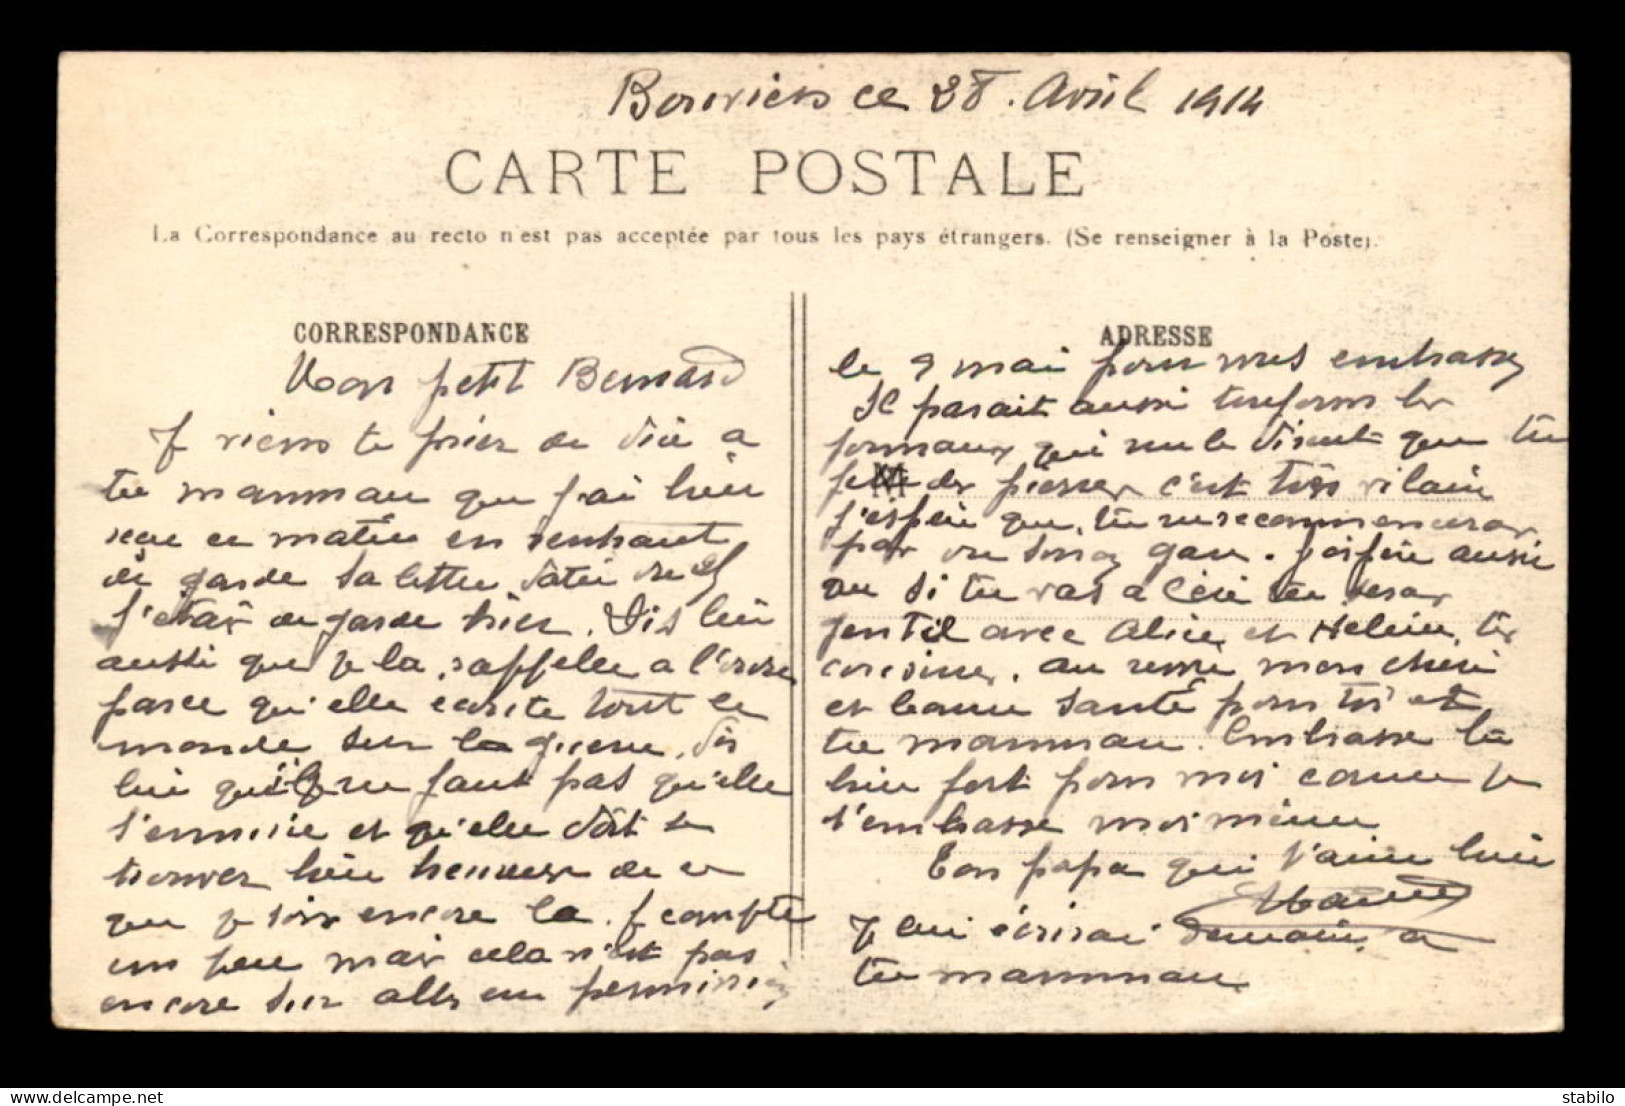 Bouviers ce 28. Avril 1914
CARTE POSTALE
La Correspondance au recto n'est pas acceptée par tous les pays étrangers. (Se renseigner à la Poste).
CORRESPONDANCE
Mon petit Bernard
Je viens te prier de dire a
ta manman que j'ai bien
reçu ce matin en rentrant
de garde sa lettre datée du
J'etais de garde hier. Dis lui
aussi que je la rappelle a l'ordre
parce qu'elle ecrite tout le
monde sur la guerre, dis
lui qu'il ne faut pas qu'elle
s'ennuie et qu'elle doit se
trouver bien heureuse de ce
que je sois encore la. Je compte
un peu mais cela n'est pas
encore sur aller en permission
ADRESSE
le 9 mai pour vous embrasser
Il parait aussi toujours les
journaux qui me le disent que tu
de pisser c'est très vilain
j'espère que tu ne recommenceras
pas ou sinon gare. J'espère aussi
que si tu vas a tu seras
gentil avec Alice et Helene, tes
cousines. au revoir mon cheri
et bonne santé pour toi et
ta manman. Embrasse la
bien fort pour moi comme je
t'embrasse moi même
Ton papa qui t'aime bien
Je lui écrirai demain a
ta manman
stabilo